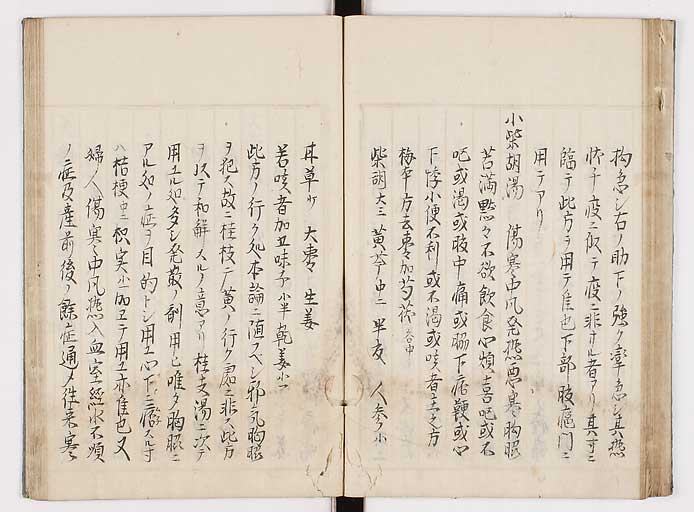 拘急シ右ノ肋下ノ強ク牽急シ其熱
臨テ此方ヲ用テ佳也下部
用テアリ
小柴胡湯 傷寒中風発熱悪寒胸脇
苦満黙々不欲飲食心煩喜吐或不
吐或渇或腹中痛或脇下痞鞕或心
下悸小便不利或不渇或咳者主之方
柴胡大三 黄芩中二 半夏 人参小
甘草小 大棗 生姜
若咳者加五味子小半乾姜小一
此方ノ行ク処本論ニ随フベシ邪気胸脇
ヲ犯ス故ニ桂枝二黄ノ行ク処ニ非ス此方
ヲ以テ和解スルノ意アリ桂支湯ニ次テ
用ユル処多シ発散ノ剤用也唯ク胸脇ニ
アル処ノ症ヲ目的トシ用ユ心下ニ痞スル寸
ハ桔梗中二枳実小一加ヱテ用ユ亦佳也又
婦ノ人傷寒中風熱入血室経水不順
ノ症及産前後ノ餘症通メ往来寒